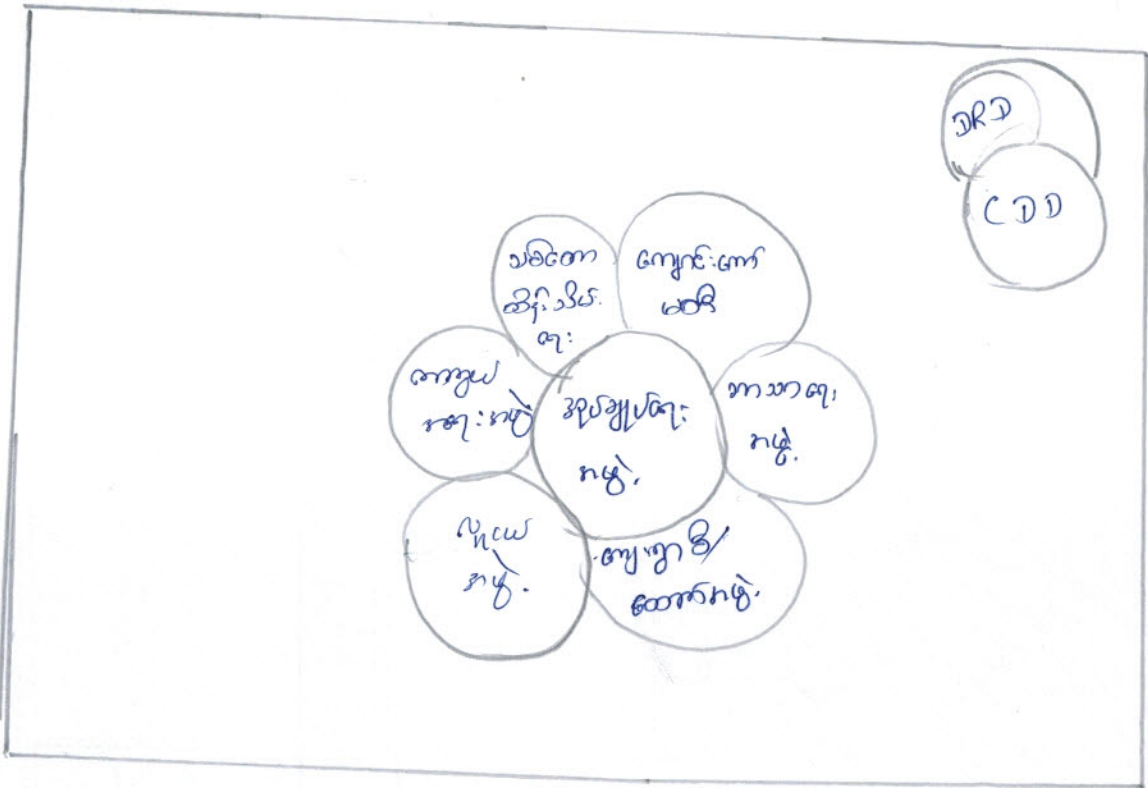 DRD
CDD
သစ်တော
ထိန်းသိမ်း
ရေး
ကျောင်းကော်
မတီ
ကာကွယ်
အရေးအဖွဲ့
အုပ်ချုပ်ရေး
အဖွဲ့
ဘာသာရေး
အဖွဲ့
လူငယ်
အဖွဲ့
ကျေးရွာဖွံ့/
ထောက်အဖွဲ့